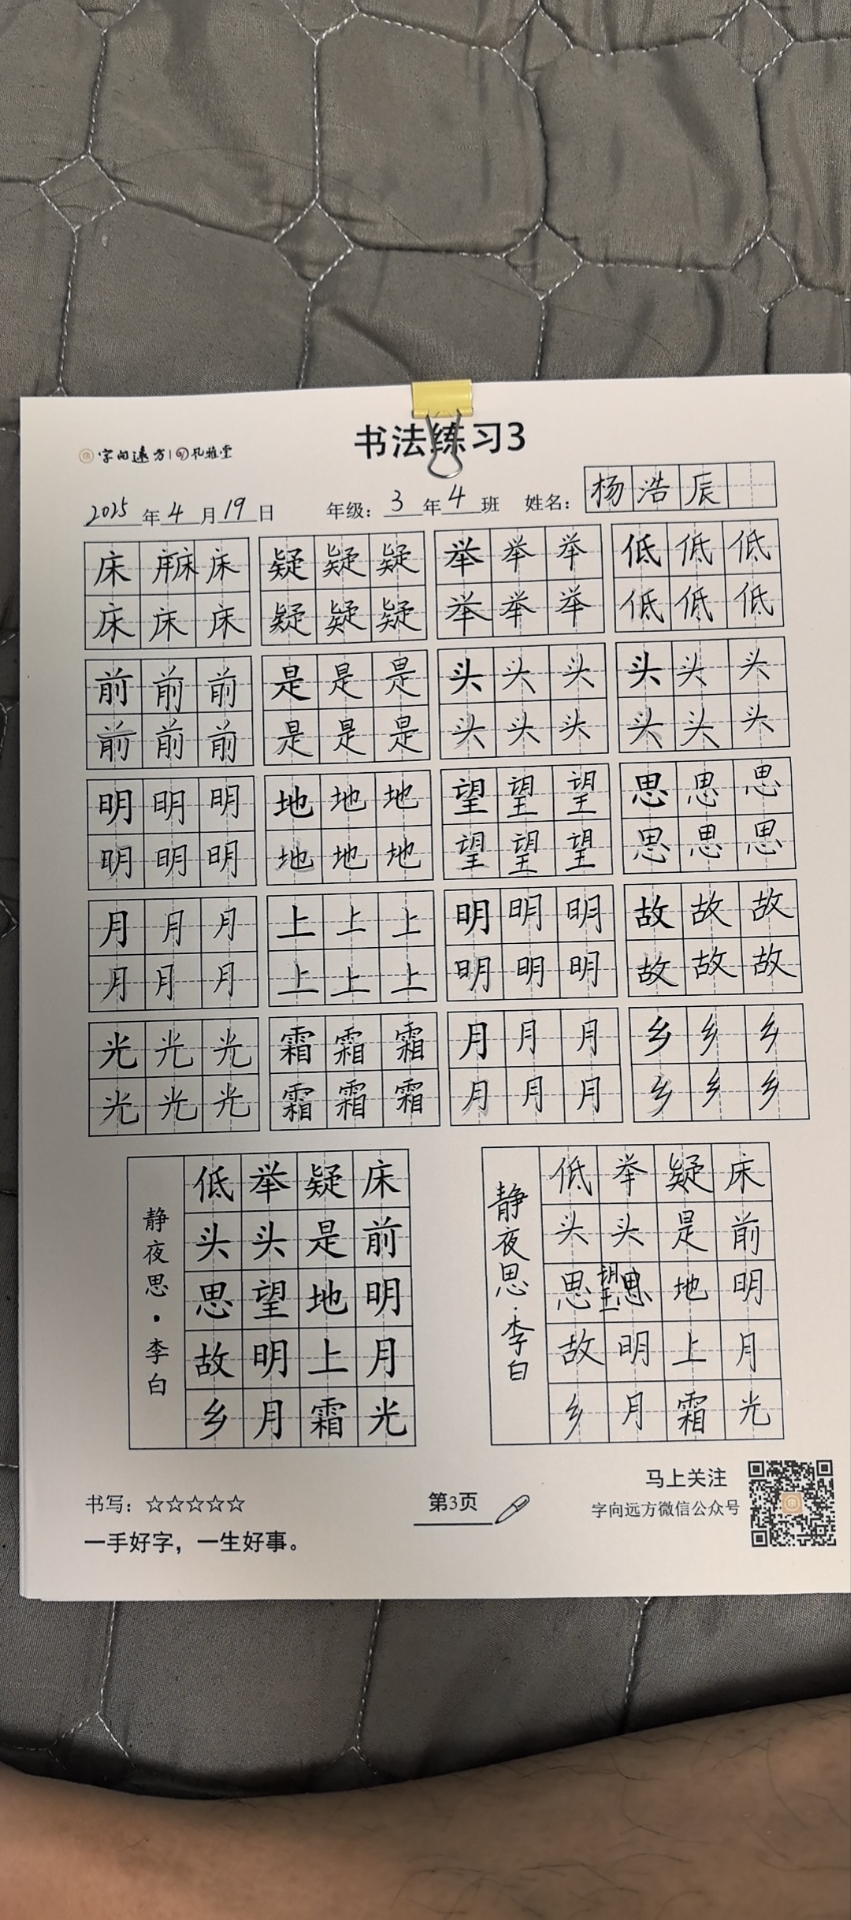 字向远方 孔雅堂
书法练习3
2025年4月19日 年级：3年4班 姓名：杨浩辰
床 床床 床 疑 疑 疑 举 举 举 低 低 低
床 床 床 疑 疑 疑 举 举 举 低 低 低
前 前 前 是 是 是 头 头 头 头 头 头
前 前 前 是 是 是 头 头 头 头 头 头
明 明 明 地 地 地 望 望 望 思 思 思
明 明 明 地 地 地 望 望 望 思 思 思
月 月 月 上 上 上 明 明 明 故 故 故
月 月 月 上 上 上 明 明 明 故 故 故
光 光 光 霜 霜 霜 月 月 月 乡 乡 乡
光 光 光 霜 霜 霜 月 月 月 乡 乡 乡
床前明月光
疑是地上霜
举头望明月
低头思故乡
静夜思·李白
床前明月光
疑是地上霜
举头望思明月
低头思故乡
静夜思·李白
书写：☆☆☆☆☆
一手好字，一生好事。
第3页
马上关注
字向远方微信公众号